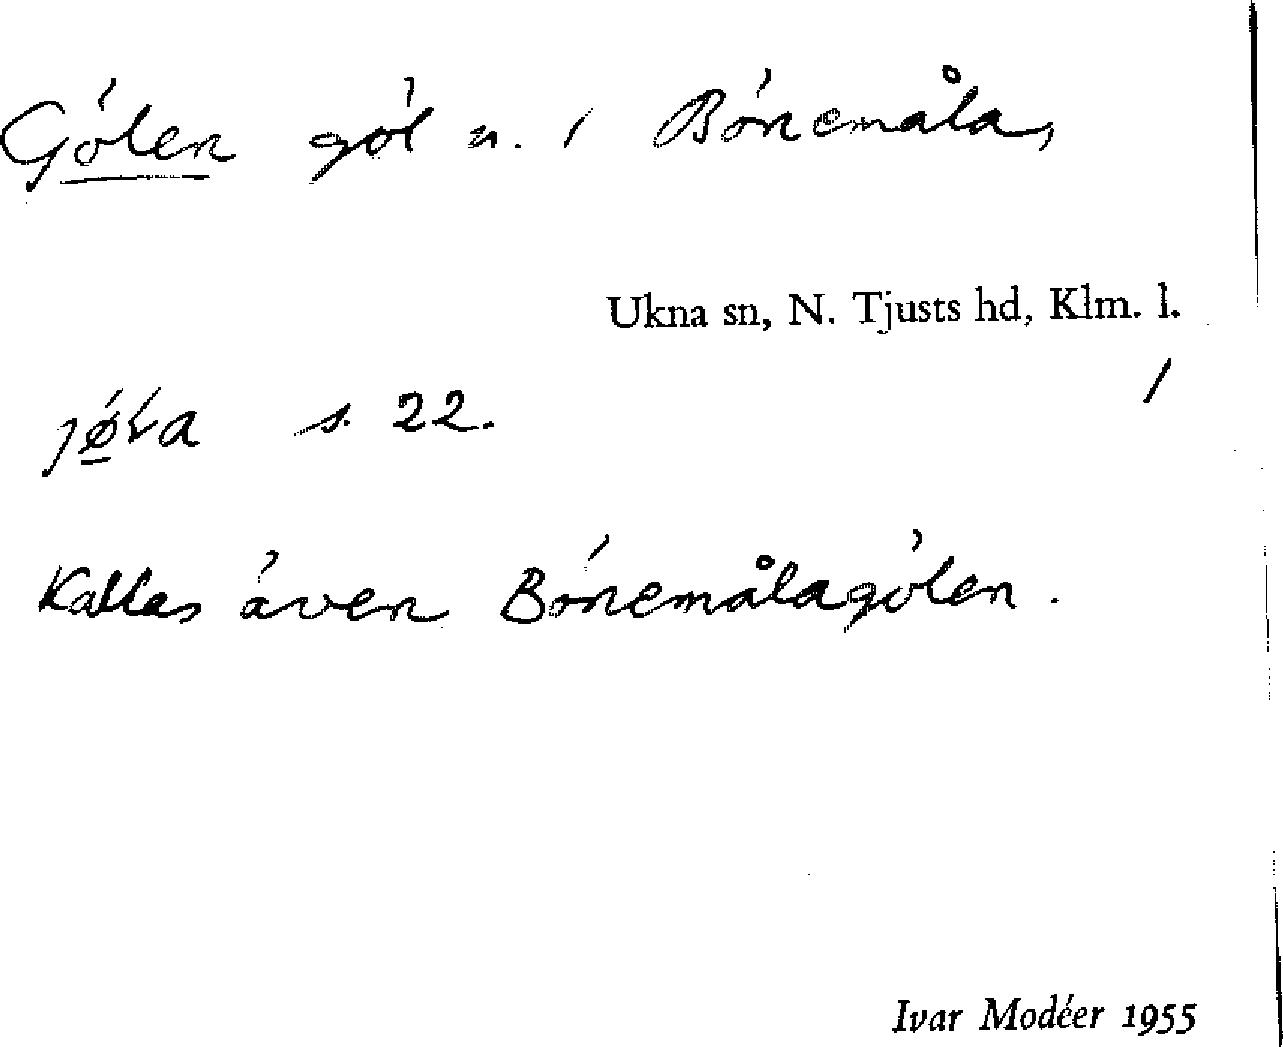 Gölen göl n. i Bönemåla,
Ukna sn, N. Tjusts hd, Klm. l.
s. 22.
Kallas även Bönemålagölen.
Ivar Modéer 1955